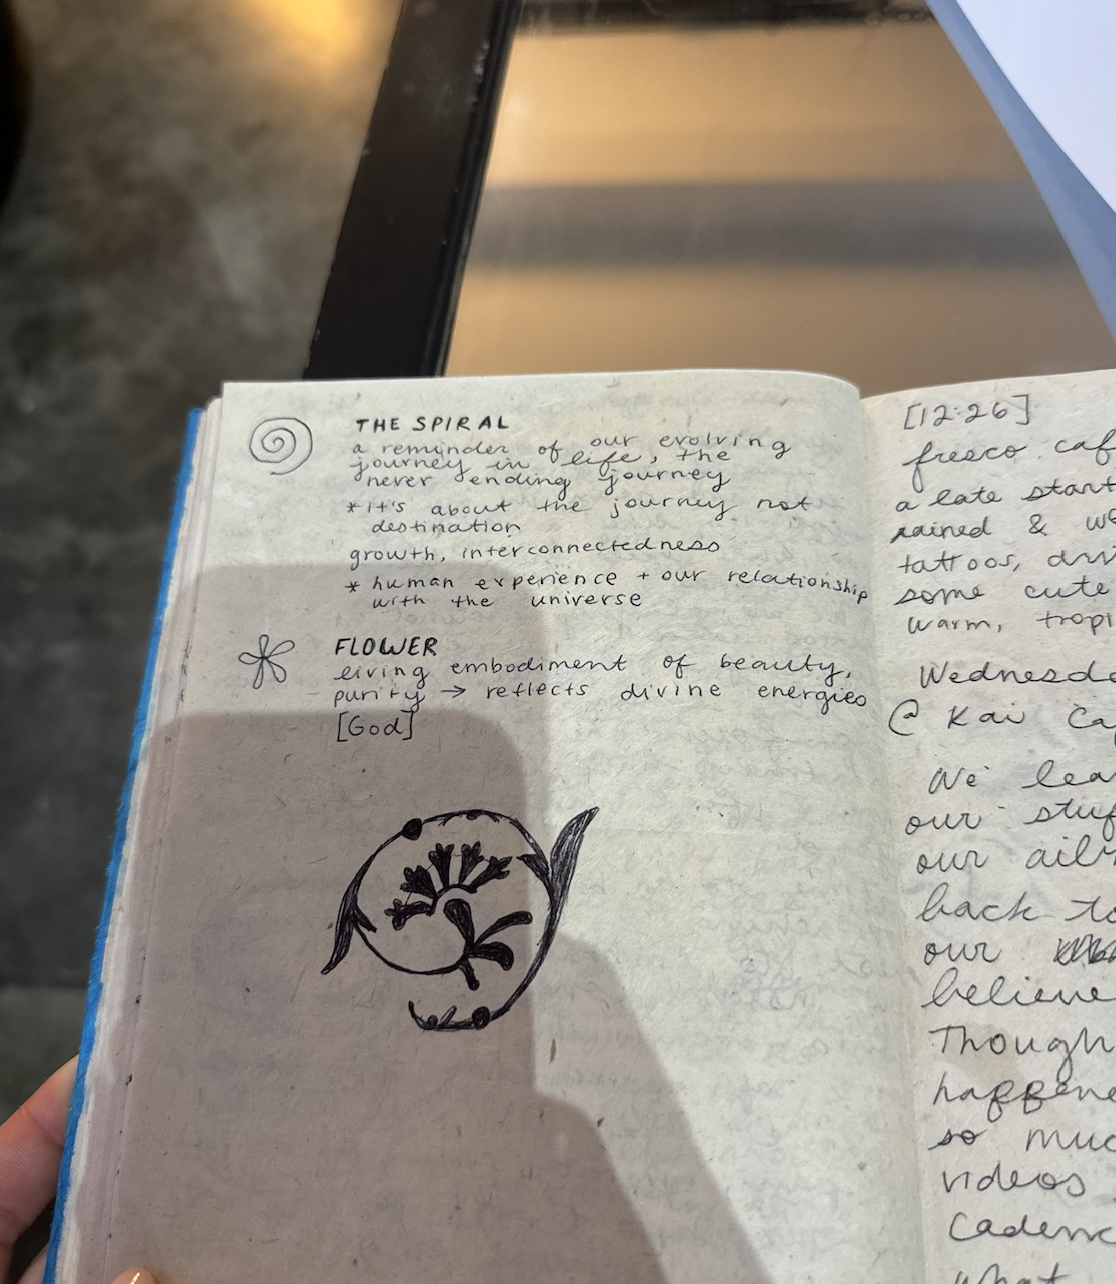 THE SPIRAL
a reminder of our evolving
journey in life, the
never ending journey
*it's about the journey not
destination
growth, interconnectedness
* human experience + our relationship
with the universe
FLOWER
living embodiment of beauty,
purity → reflects divine energies
[God]
[12.26]
fresco caf
a late start
rained & we
tattoos, dri
some cute
warm, tropi
Wednesda
@ Kai Ca
We lea
our stuf
our
back to
our
believe
Though
happene
so muc
videos
Cadenc
what